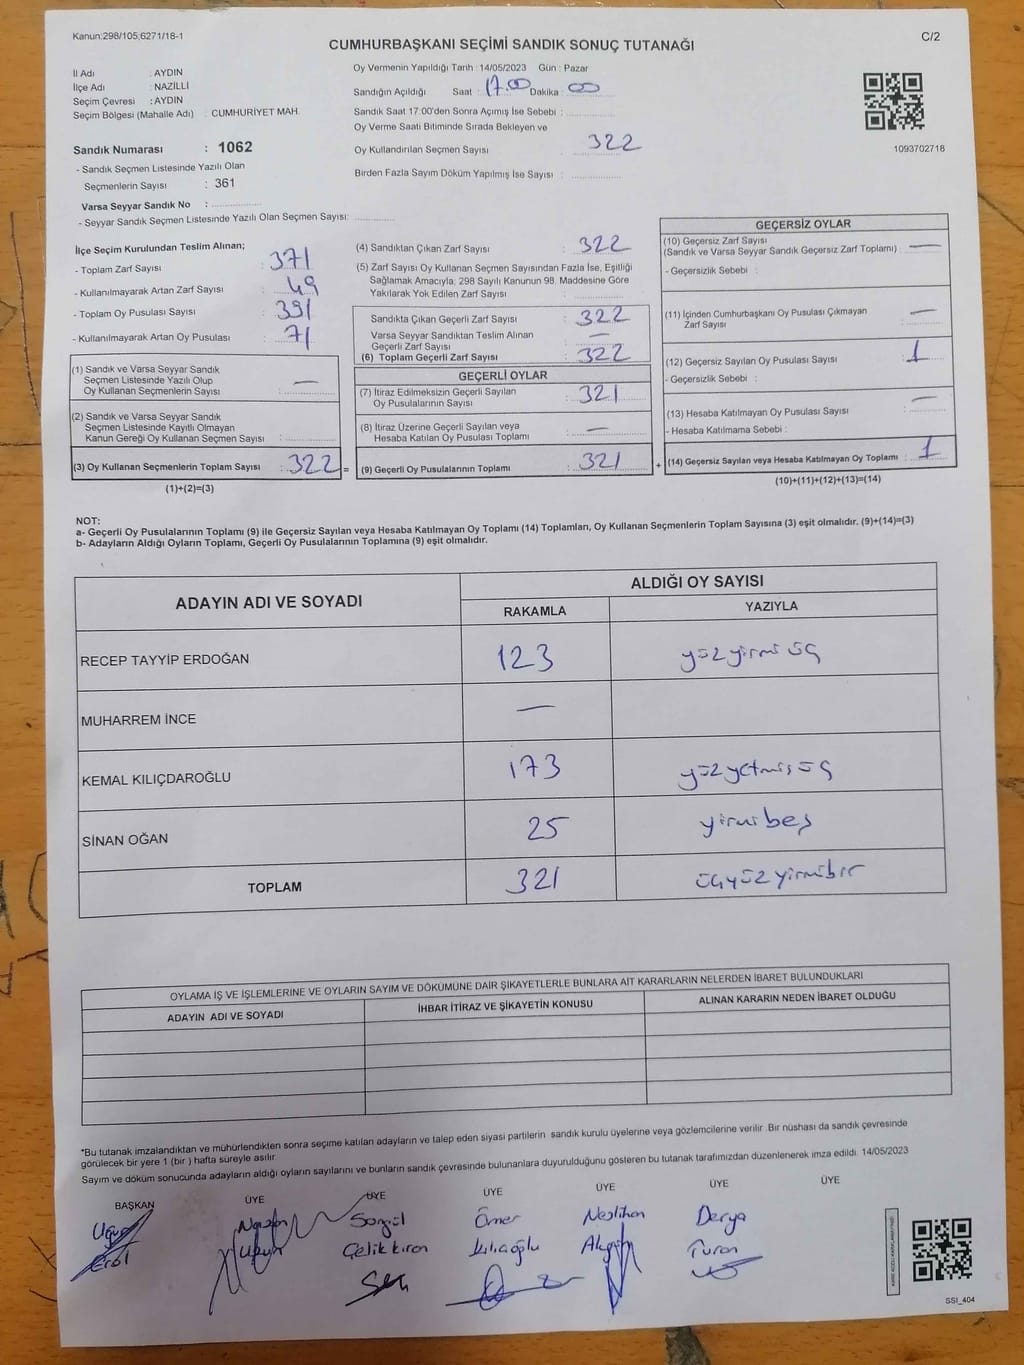 Kanun:298/105,6271/18-1
C/2
CUMHURBAŞKANI SEÇİMİ SANDIK SONUÇ TUTANAĞI
İl Adı : AYDIN
İlçe Adı : NAZİLLİ
Seçim Çevresi : AYDIN
Seçim Bölgesi (Mahalle Adı) : CUMHURİYET MAH.
Sandık Numarası : 1062
- Sandık Seçmen Listesinde Yazılı Olan
Seçmenlerin Sayısı : 361
Varsa Seyyar Sandık No :
- Seyyar Sandık Seçmen Listesinde Yazılı Olan Seçmen Sayısı:
Oy Vermenin Yapıldığı Tarih : 14/05/2023 Gün : Pazar
Sandığın Açıldığı Saat : 17.00 Dakika : 00
Sandık Saat 17:00'den Sonra Açımış İse Sebebi :
Oy Verme Saati Bitiminde Sırada Bekleyen ve
Oy Kullandırılan Seçmen Sayısı : 322
Birden Fazla Sayım Döküm Yapılmış İse Sayısı :
1093702718
İlçe Seçim Kurulundan Teslim Alınan;
- Toplam Zarf Sayısı : 371
- Kullanılmayarak Artan Zarf Sayısı : 49
- Toplam Oy Pusulası Sayısı : 391
- Kullanılmayarak Artan Oy Pusulası : 71
(1) Sandık ve Varsa Seyyar Sandık
Seçmen Listesinde Yazılı Olup
Oy Kullanan Seçmenlerin Sayısı : —
(2) Sandık ve Varsa Seyyar Sandık
Seçmen Listesinde Kayıtlı Olmayan
Kanun Gereği Oy Kullanan Seçmen Sayısı :
(3) Oy Kullanan Seçmenlerin Toplam Sayısı : 322 =
(1)+(2)=(3)
(4) Sandıktan Çıkan Zarf Sayısı : 322
(5) Zarf Sayısı Oy Kullanan Seçmen Sayısından Fazla İse, Eşitliği
Sağlamak Amacıyla, 298 Sayılı Kanunun 98. Maddesine Göre
Yakılarak Yok Edilen Zarf Sayısı :
Sandıkta Çıkan Geçerli Zarf Sayısı : 322
Varsa Seyyar Sandıktan Teslim Alınan
Geçerli Zarf Sayısı : —
(6) Toplam Geçerli Zarf Sayısı : 322
GEÇERLİ OYLAR
(7) İtiraz Edilmeksizin Geçerli Sayılan
Oy Pusulalarının Sayısı : 321
(8) İtiraz Üzerine Geçerli Sayılan veya
Hesaba Katılan Oy Pusulası Toplamı : —
(9) Geçerli Oy Pusulalarının Toplamı : 321 +
GEÇERSİZ OYLAR
(10) Geçersiz Zarf Sayısı
(Sandık ve Varsa Seyyar Sandık Geçersiz Zarf Toplamı) : —
- Geçersizlik Sebebi :
(11) İçinden Cumhurbaşkanı Oy Pusulası Çıkmayan
Zarf Sayısı : —
(12) Geçersiz Sayılan Oy Pusulası Sayısı : 1
- Geçersizlik Sebebi :
(13) Hesaba Katılmayan Oy Pusulası Sayısı : —
- Hesaba Katılmama Sebebi :
(14) Geçersiz Sayılan veya Hesaba Katılmayan Oy Toplamı : 1
(10)+(11)+(12)+(13)=(14)
NOT:
a- Geçerli Oy Pusulalarının Toplamı (9) ile Geçersiz Sayılan veya Hesaba Katılmayan Oy Toplamı (14) Toplamları, Oy Kullanan Seçmenlerin Toplam Sayısına (3) eşit olmalıdır. (9)+(14)=(3)
b- Adayların Aldığı Oyların Toplamı, Geçerli Oy Pusulalarının Toplamına (9) eşit olmalıdır.
ADAYIN ADI VE SOYADI
ALDIĞI OY SAYISI
RAKAMLA YAZIYLA
RECEP TAYYİP ERDOĞAN 123 yüzyirmi üç
MUHARREM İNCE —
KEMAL KILIÇDAROĞLU 173 yüzyetmiş üç
SİNAN OĞAN 25 yirmi beş
TOPLAM 321 üçyüzyirmibir
OYLAMA İŞ VE İŞLEMLERİNE VE OYLARIN SAYIM VE DÖKÜMÜNE DAİR ŞİKAYETLERLE BUNLARA AİT KARARLARIN NELERDEN İBARET BULUNDUKLARI
ADAYIN ADI VE SOYADI İHBAR İTİRAZ VE ŞİKAYETİN KONUSU ALINAN KARARIN NEDEN İBARET OLDUĞU
*Bu tutanak imzalandıktan ve mühürlendikten sonra seçime katılan adayların ve talep eden siyasi partilerin sandık kurulu üyelerine veya gözlemcilerine verilir .Bir nüshası da sandık çevresinde
görülecek bir yere 1 (bir ) hafta süreyle asılır.
Sayım ve döküm sonucunda adayların aldığı oyların sayılarını ve bunların sandık çevresinde bulunanlara duyurulduğunu gösteren bu tutanak tarafımızdan düzenlenerek imza edildi. 14/05/2023
BAŞKAN ÜYE ÜYE ÜYE ÜYE ÜYE ÜYE
Uğur Songül Ömer Neslihan Derya
Erol Çelikkıran Kılıçoğlu Turan
SSI_404